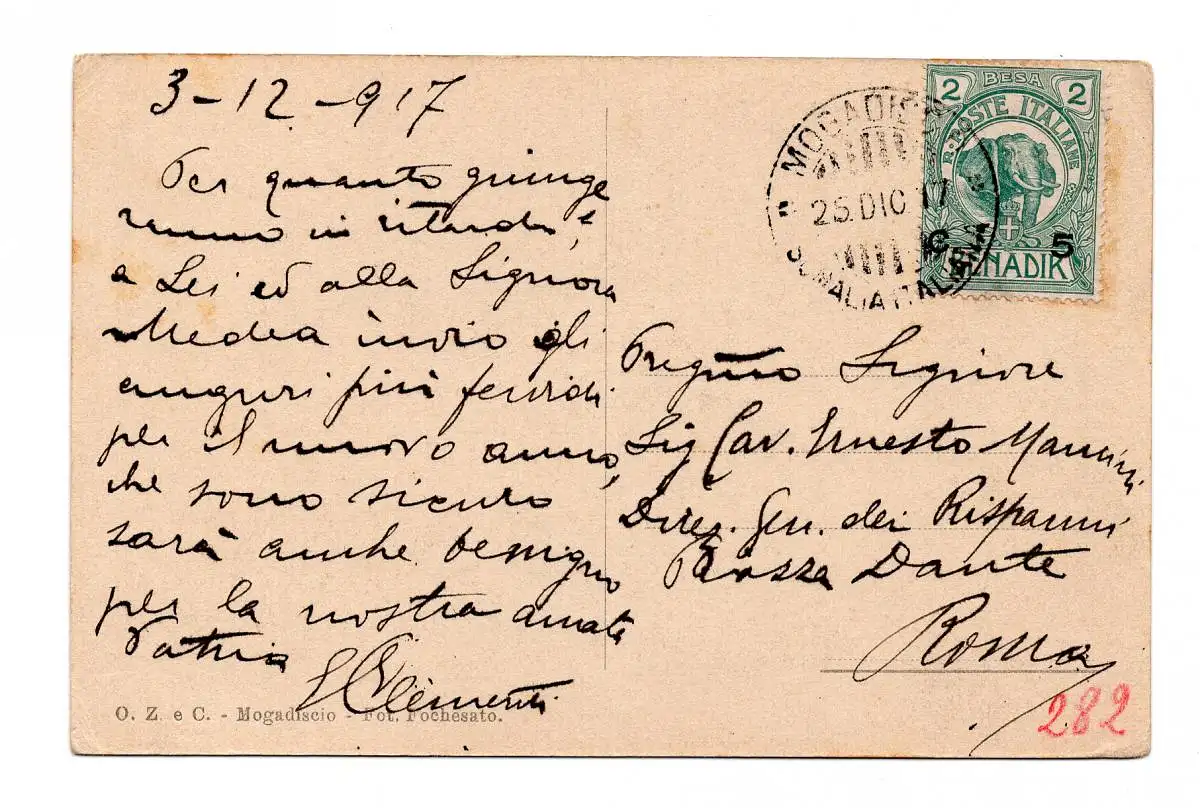 3-12-917
Per quanto giunge
ranno in ritardo,
a Lei ed alla Signora
Medea invio gli
auguri più fervidi
per il nuovo anno,
che sono sicuro
sarà anche benigno
per la nostra amata
Patria
Clementi
O. Z. e C. - Mogadiscio - Fot. Fochesato.
MOGADISCIO
25 DIC 17
SOMALIA ITALIANA
2 BESA 2
R. POSTE ITALIANE
C. 5
BENADIR
Pregmo Signore
Sig Cav. Ernesto Mancini
Direz. Gen. dei Risparmi
Piazza Dante
Roma
282